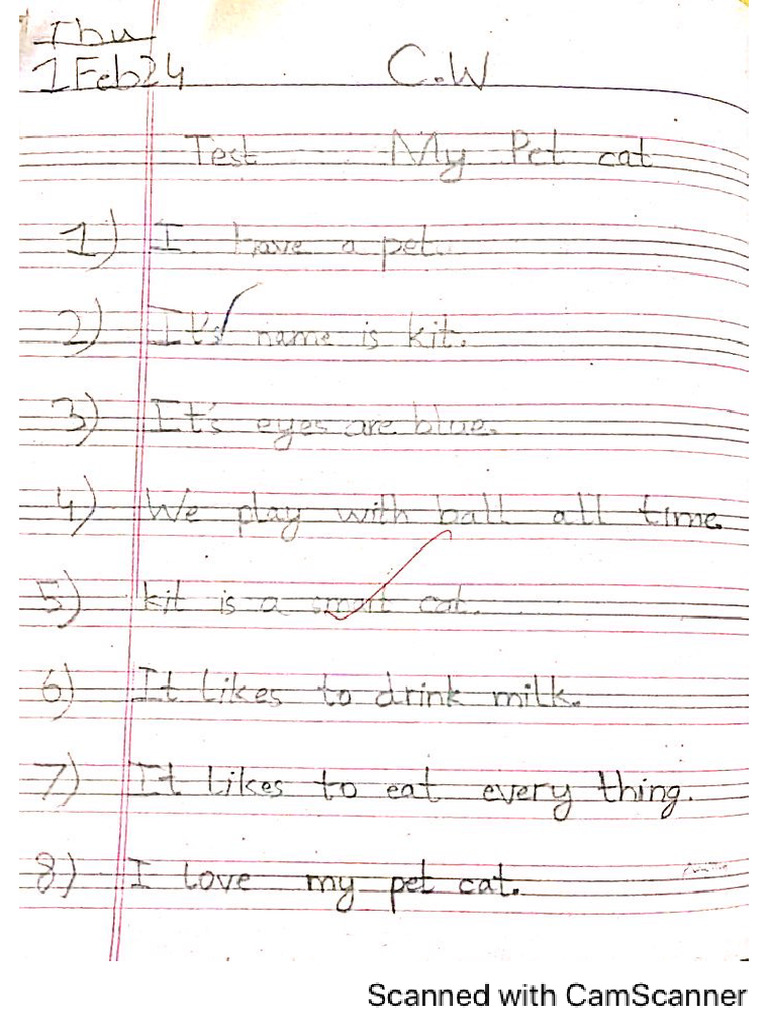 Thu
1 Feb 24 C.W
Test My Pet cat
1) I have a pet.
2) It's name is kit.
3) It's eyes are blue.
4) We play with ball all time.
5) kit is a smart cat.
6) It likes to drink milk.
7) It likes to eat every thing.
8) I love my pet cat.
Scanned with CamScanner